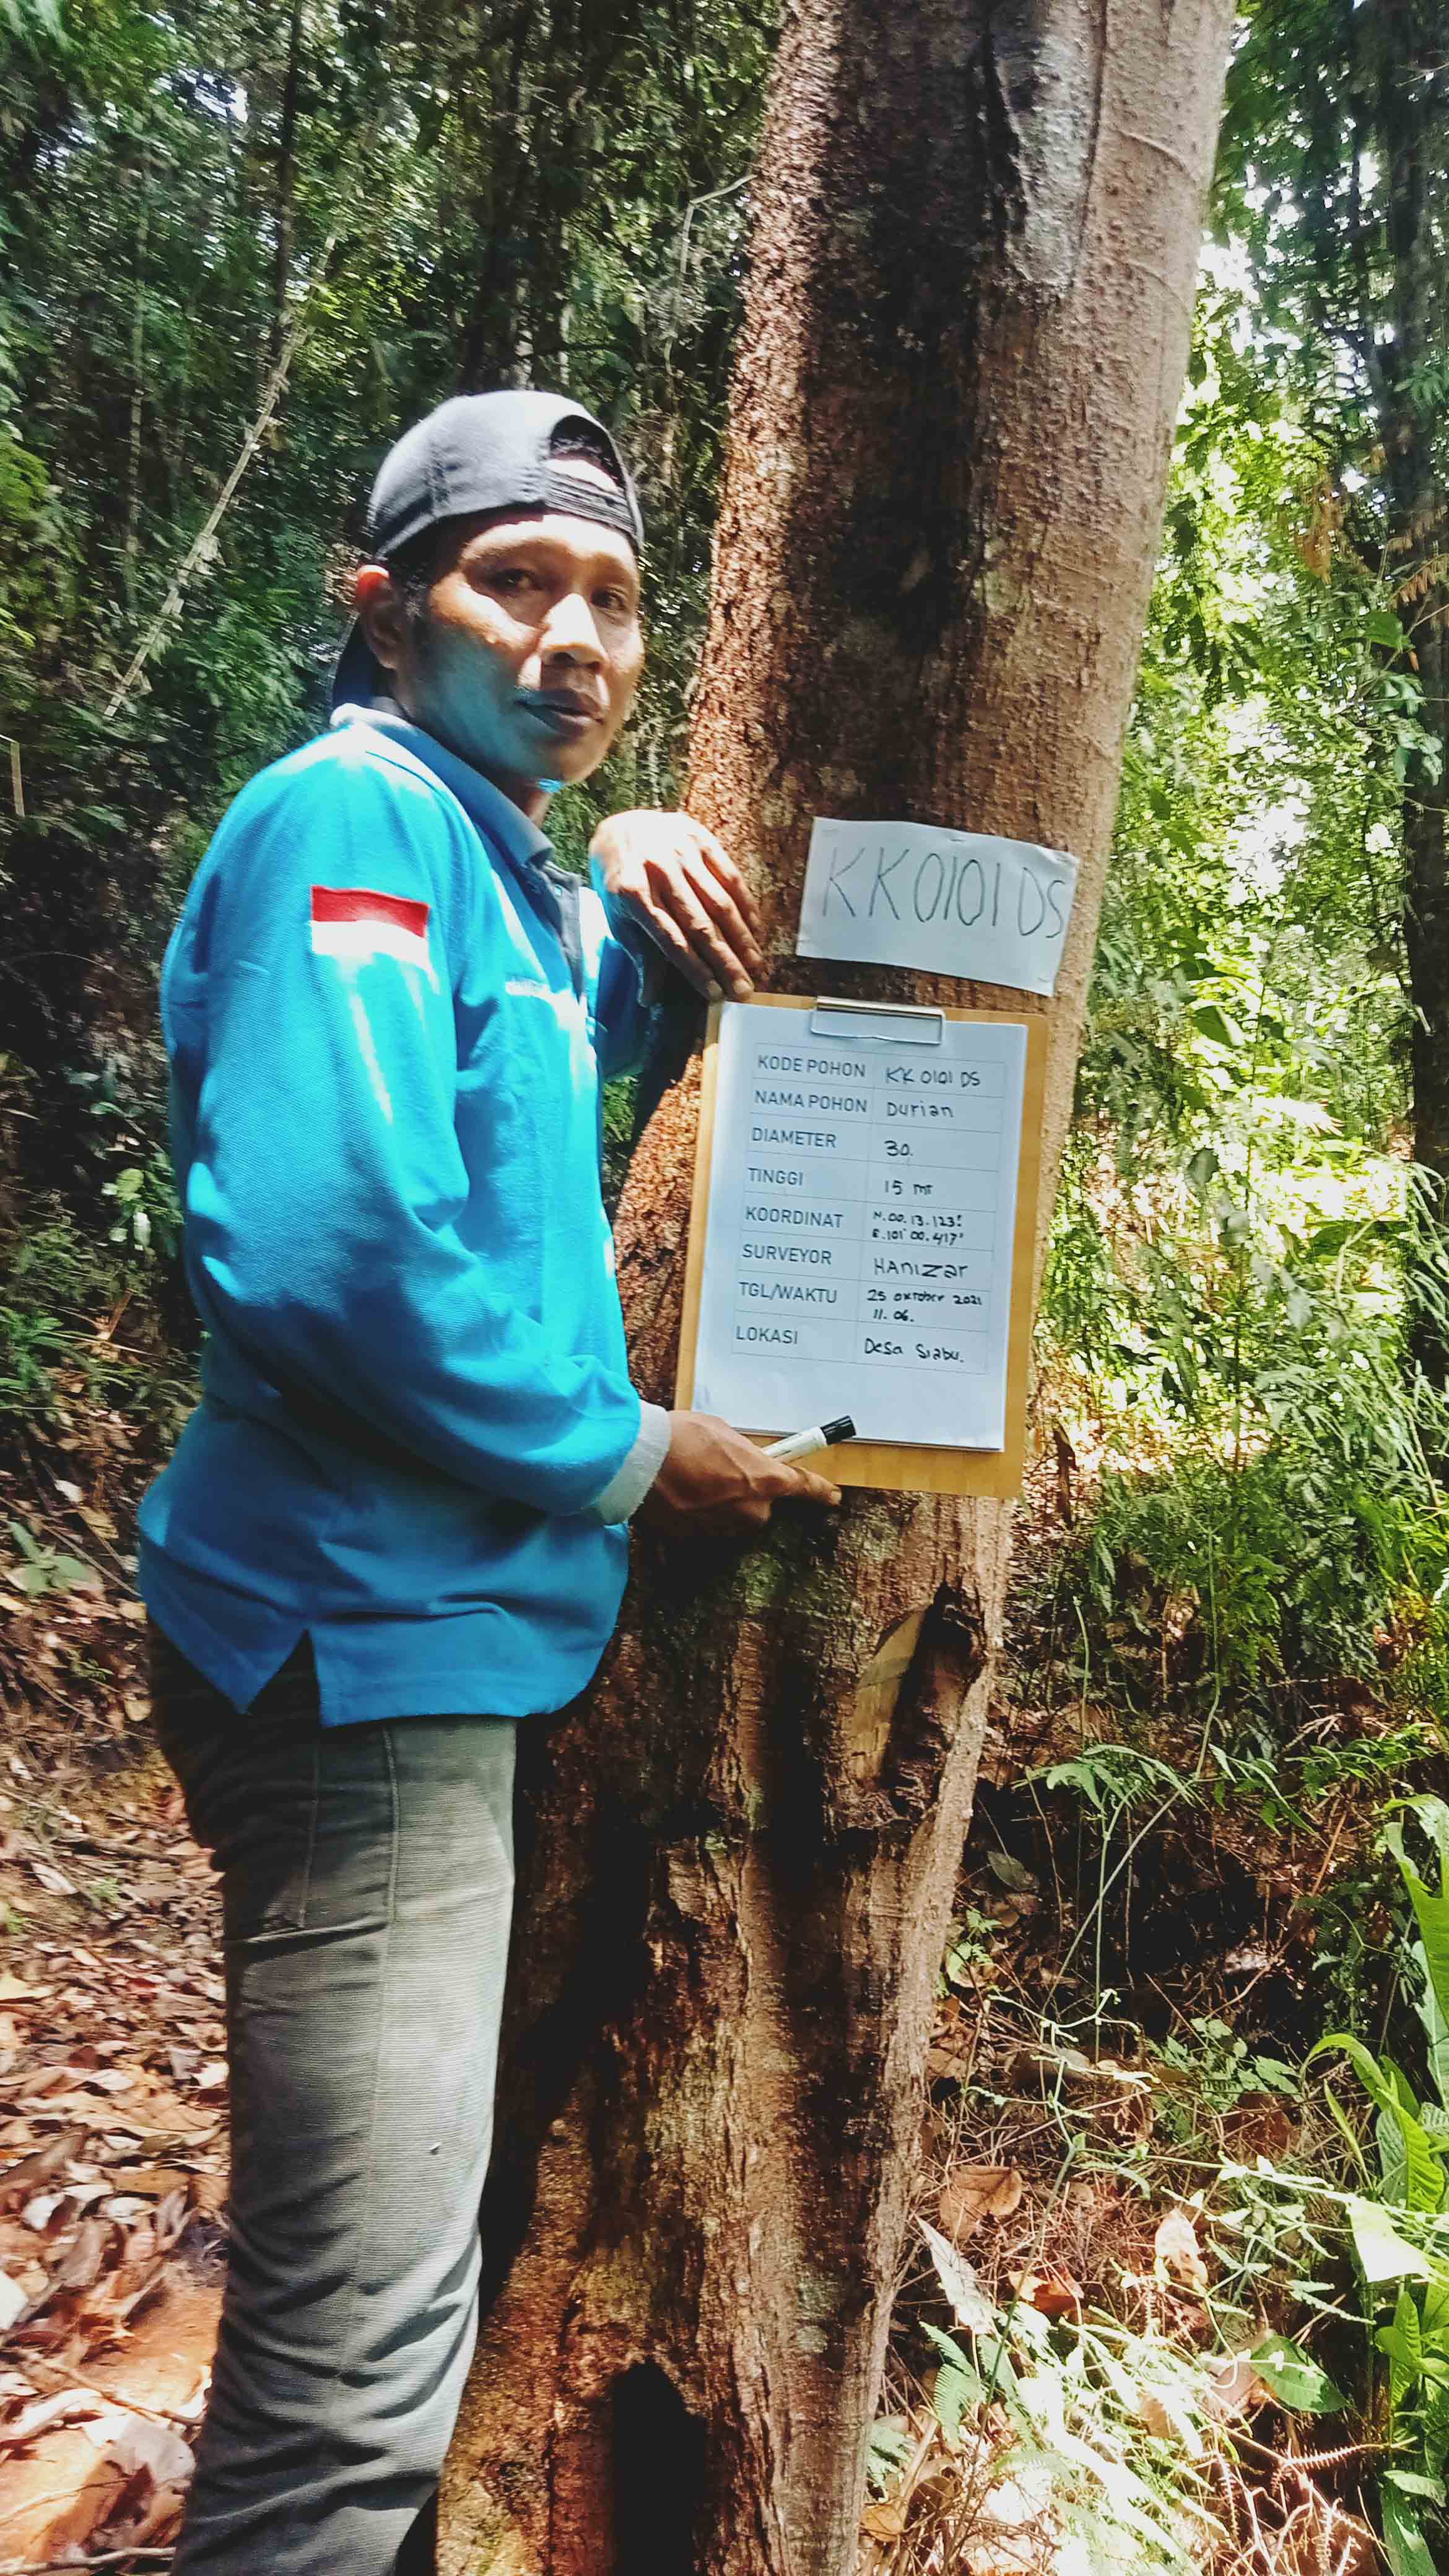 KK0101DS
KODE POHON KK 0101 DS
NAMA POHON Durian
DIAMETER 30.
TINGGI 15 mt
KOORDINAT N.00.13.123'
E.101° 00.417'
SURVEYOR HANIZAR
TGL/WAKTU 25 oktober 2021
11.06.
LOKASI Desa Siabu.